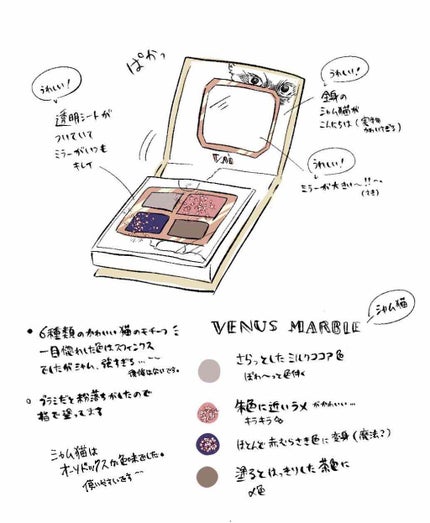 ぱかっ
うれしい!
透明シートが
ついていて
ミラーがいつも
キレイ
うれしい!
シャム猫が
こんにちは
うれしい!
ミラーが大きい〜!!〜
• 6種類のかわいい猫のモチーフ
一目惚れした色はスフィンクス
でしたがシャム、強すぎる…
後悔はないです。
• ブラシだと粉落ちがしたので
指で塗ってます
シャム猫は
オーソドックスな色味でした。
使いやすいです〜
VENUS MARBLE
シャム猫
さらっとしたミルクココア色
ぽわ〜っと色付く
朱色に近いラメがかわいい…
キラキラ
ほとんど赤むらさき色に変身(魔法?)
塗るとはっきりした茶色に
〆色